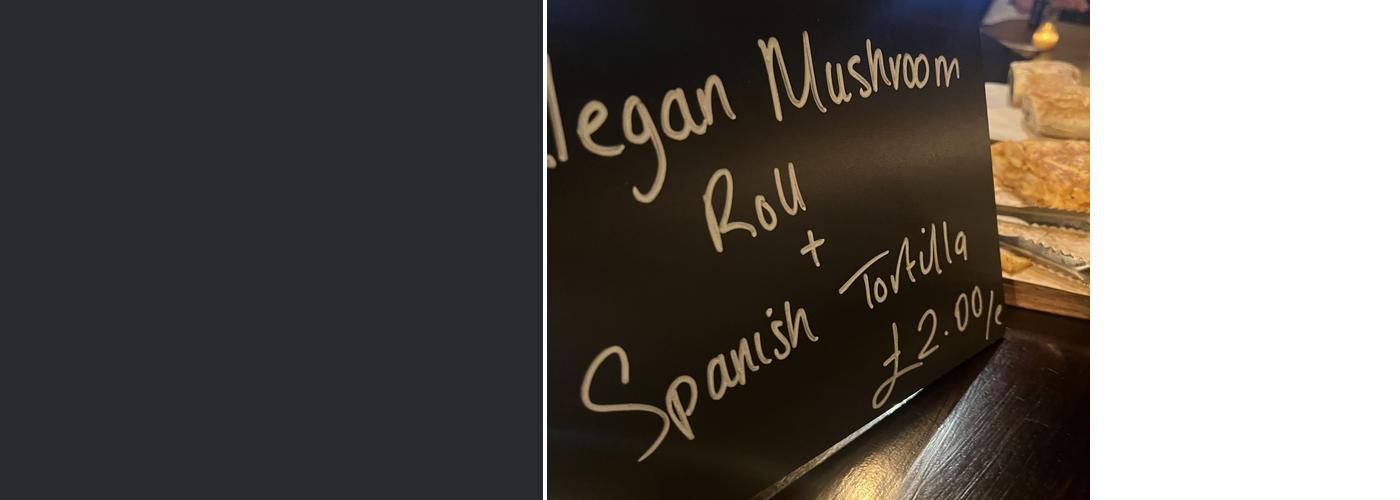 Vegan Mushroom
Roll
+
Spanish Tortilla
£2.00/e